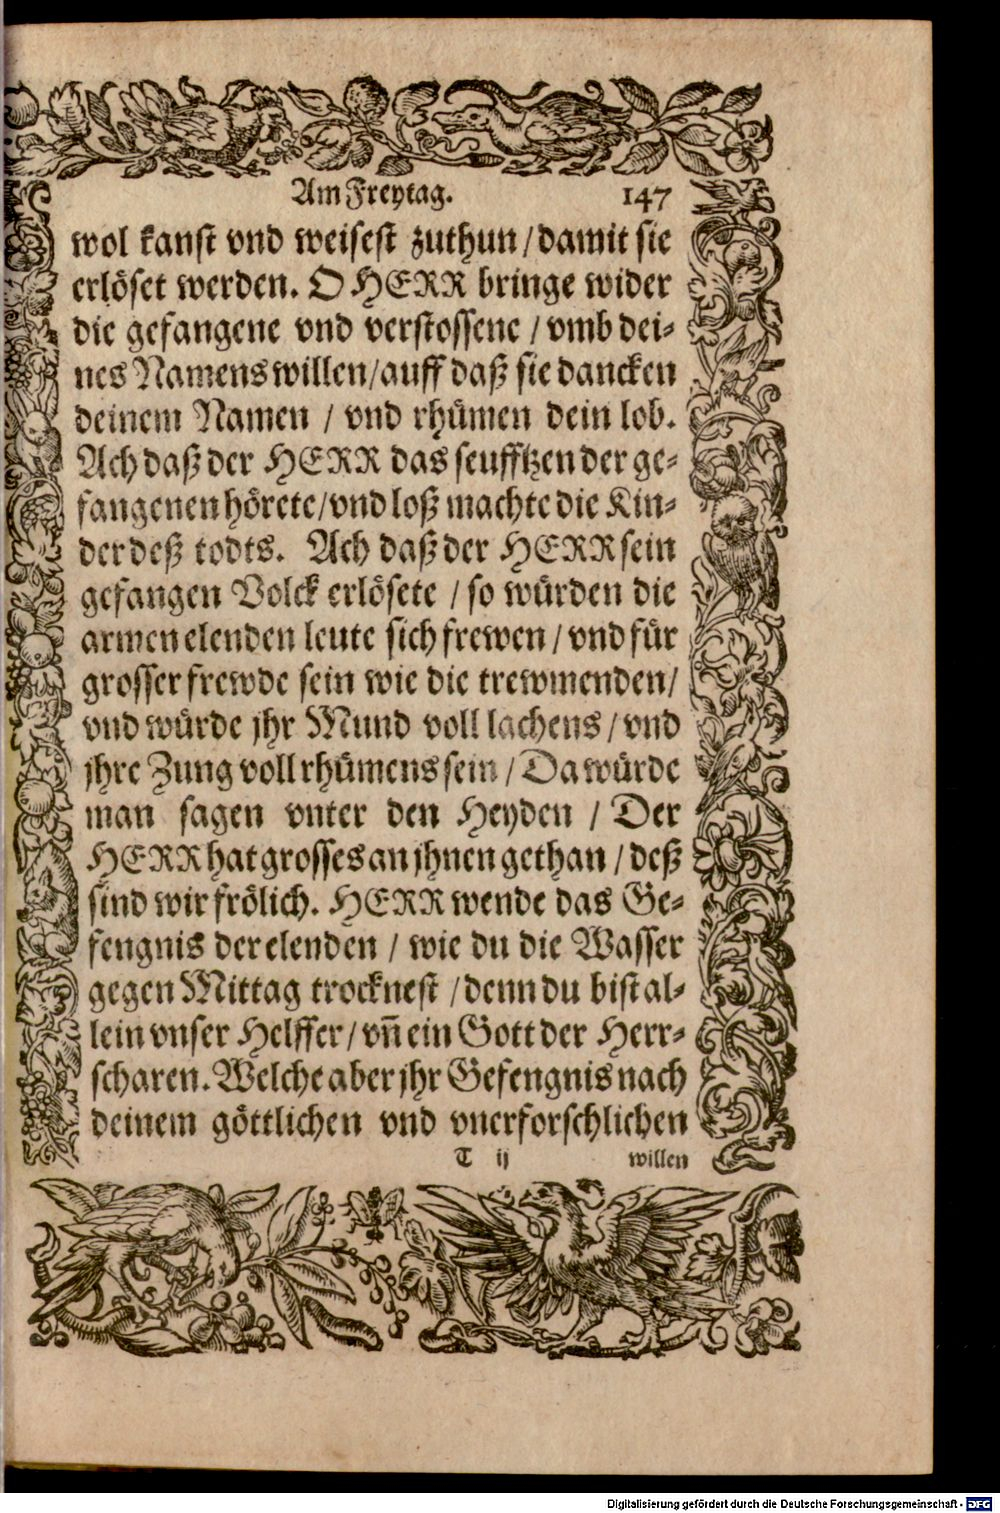 Am Freytag. 147
wol kanst vnd weisest zuthun / damit sie
erlöset werden. O HERR bringe wider
die gefangene vnd verstossene / vmb dei-
nes Namens willen / auff daß sie dancken
deinem Namen / vnd rhümen dein lob.
Ach daß der HERR das seufftzen der ge-
fangenen hörete / vnd loß machte die Kin-
der deß todts. Ach daß der HERR sein
gefangen Volck erlösete / so würden die
armen elenden leute sich frewen / vnd für
grosser frewde sein wie die trewmenden /
vnd würde jhr Mund voll lachens / vnd
jhre Zung voll rhümens sein / Da würde
man sagen vnter den Heyden / Der
HERR hat grosses an jhnen gethan / deß
sind wir frölich. HERR wende das Ge-
fengnis der elenden / wie du die Wasser
gegen Mittag trocknest / denn du bist al-
lein vnser Helffer / vñ ein Gott der Herr-
scharen. Welche aber jhr Gefengnis nach
deinem göttlichen vnd vnerforschlichen
T ij willen
Digitalisierung gefördert durch die Deutsche Forschungsgemeinschaft - DFG